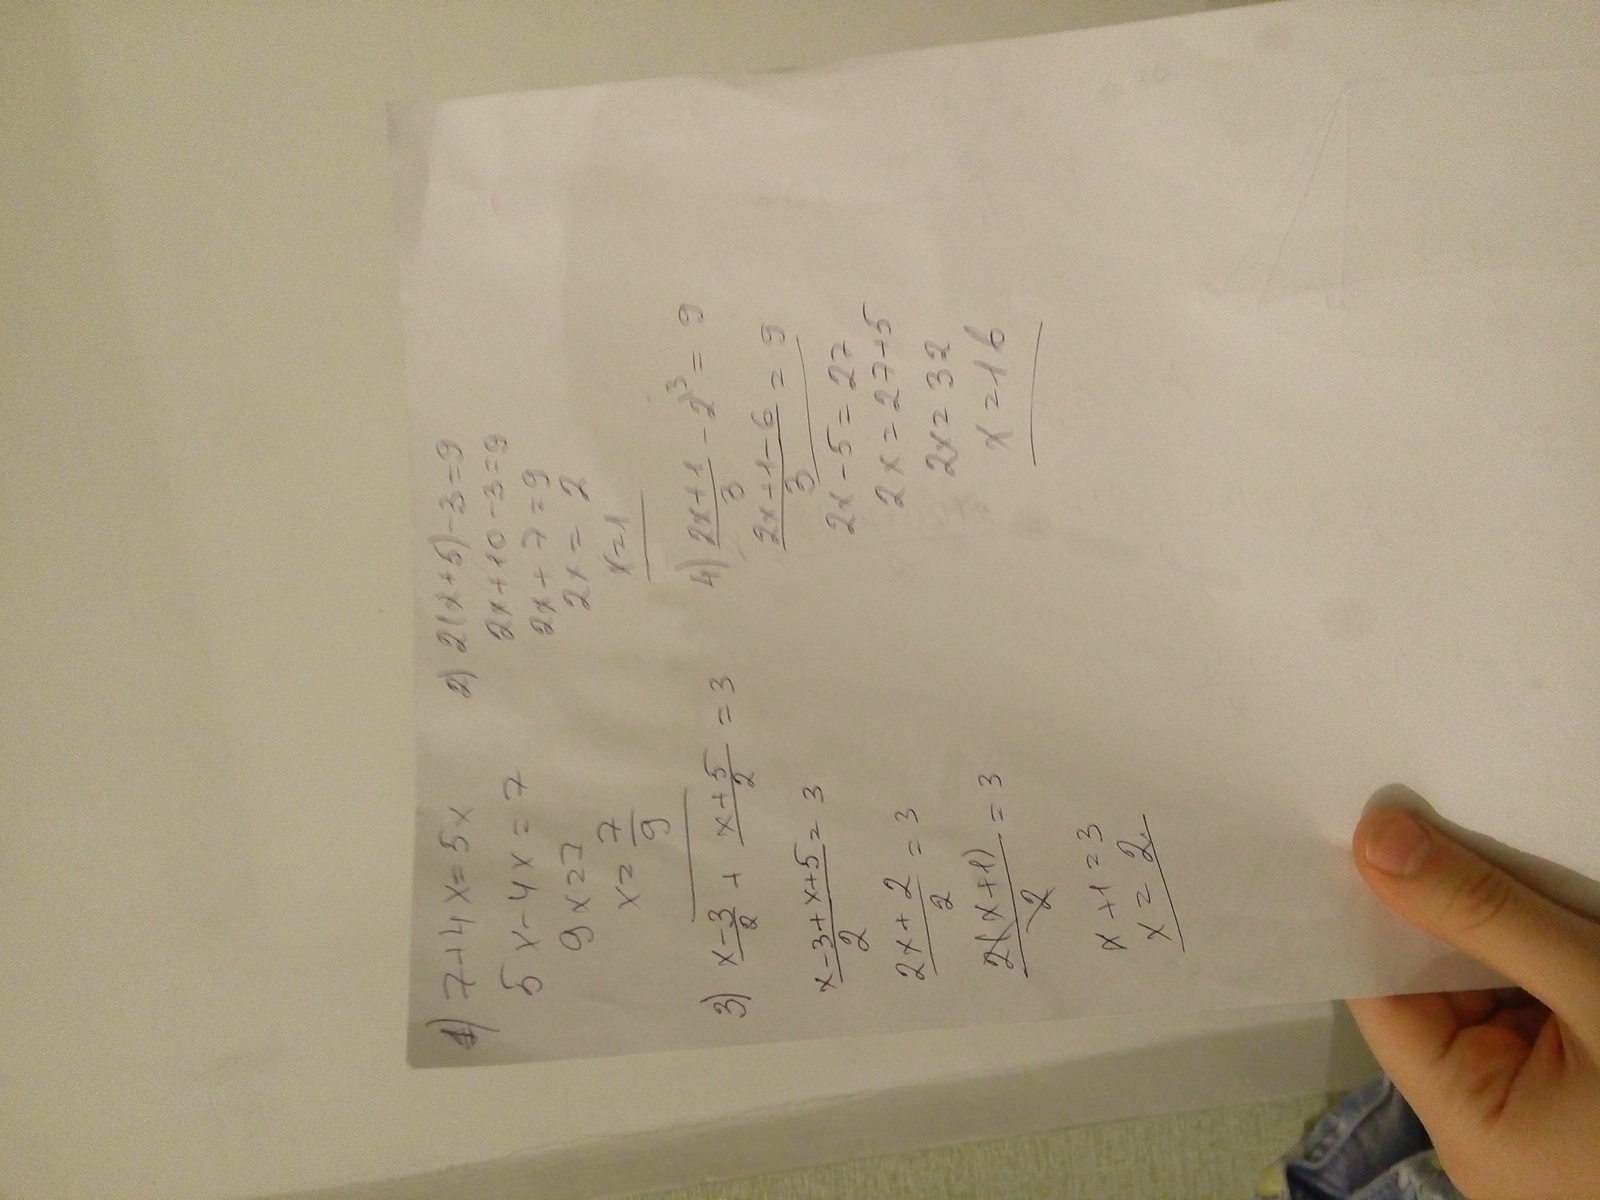 1) 7+4x=5x
5x-4x=7
9x=7
x=7/9
2) 2(x+5)-3=9
2x+10-3=9
2x+7=9
2x=2
x=1
3) x-3/2 + x+5/2 =3
x-3+x+5/2=3
2x+2/2=3
2(x+1)/2=3
x+1=3
x=2
4) 2x+1/3 -2^3=9
2x+1-6/3=9
2x-5=27
2x=27+5
2x=32
x=16